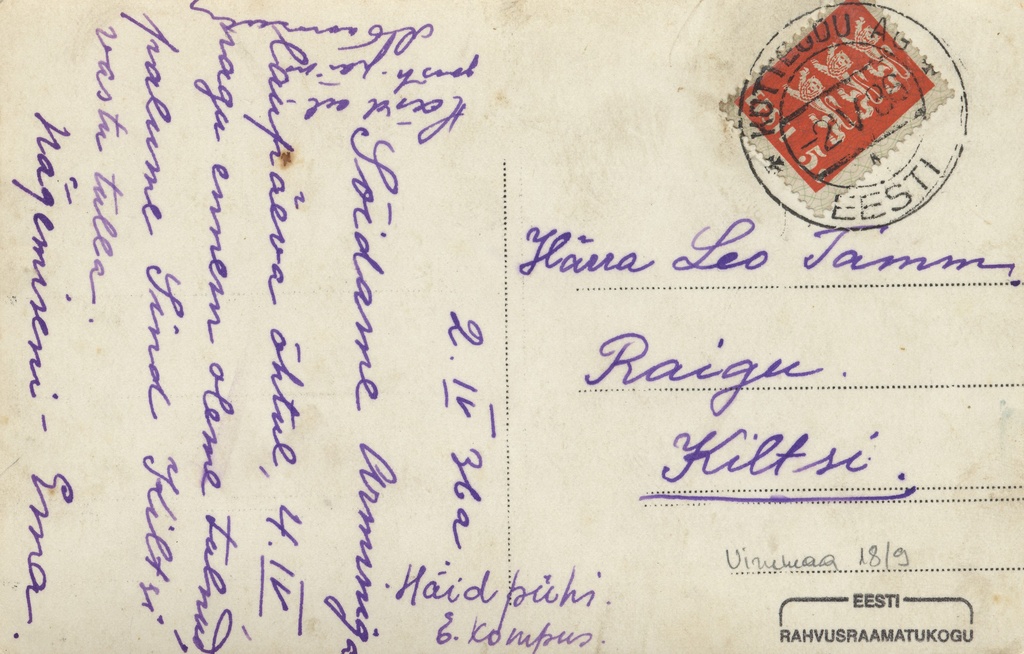 2. IV 36a
Sõidame Armuniga
laupäeva õhtul, 4. IV
nagu ennem oleme tulnud
palume Sind Kiltsi
vastu tulla.
Nägemiseni - Erna.
Häid
püh.
Häid pühi.
E. Kompus.
KOTTEGOU AG
-2 V 36
EESTI
5
Härra Leo Tamm.
Raigu.
Kiltsi.
Virumaa 18/9
EESTI
RAHVUSRAAMATUKOGU